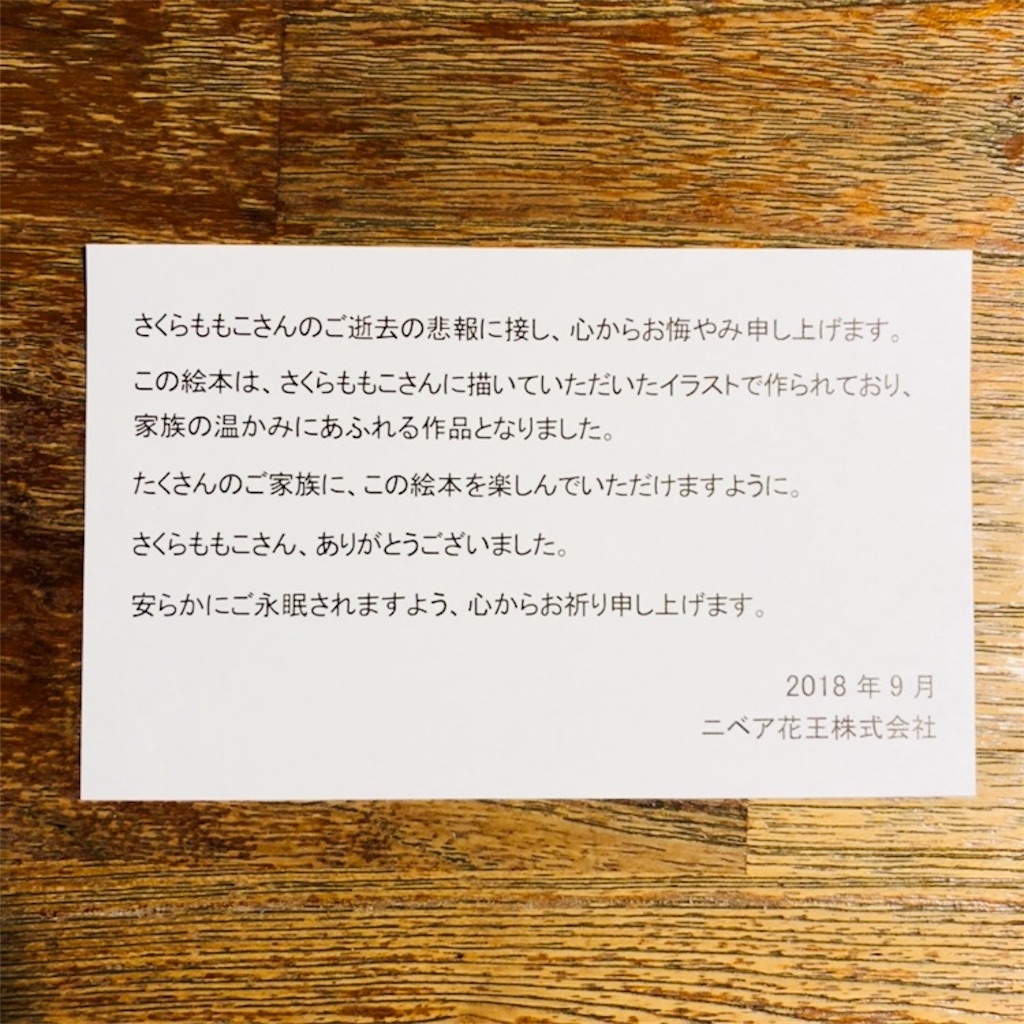 さくらももこさんのご逝去の悲報に接し、心からお悔やみ申し上げます。
この絵本は、さくらももこさんに描いていただいたイラストで作られており、
家族の温かみにあふれる作品となりました。
たくさんのご家族に、この絵本を楽しんでいただけますように。
さくらももこさん、ありがとうございました。
安らかにご永眠されますよう、心からお祈り申し上げます。
2018 年 9 月
ニベア花王株式会社